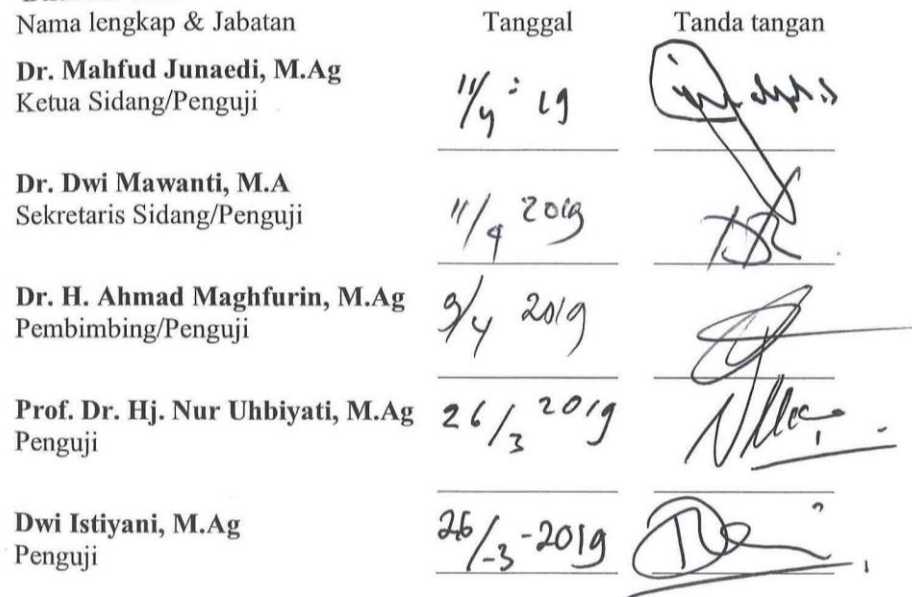 Nama lengkap & Jabatan Tanggal Tanda tangan
Dr. Mahfud Junaedi, M.Ag
Ketua Sidang/Penguji 11/4 - 19
Dr. Dwi Mawanti, M.A
Sekretaris Sidang/Penguji 11/4 2019
Dr. H. Ahmad Maghfurin, M.Ag
Pembimbing/Penguji 9/4 2019
Prof. Dr. Hj. Nur Uhbiyati, M.Ag 26/3 2019
Penguji
Dwi Istiyani, M.Ag 26/-3-2019
Penguji